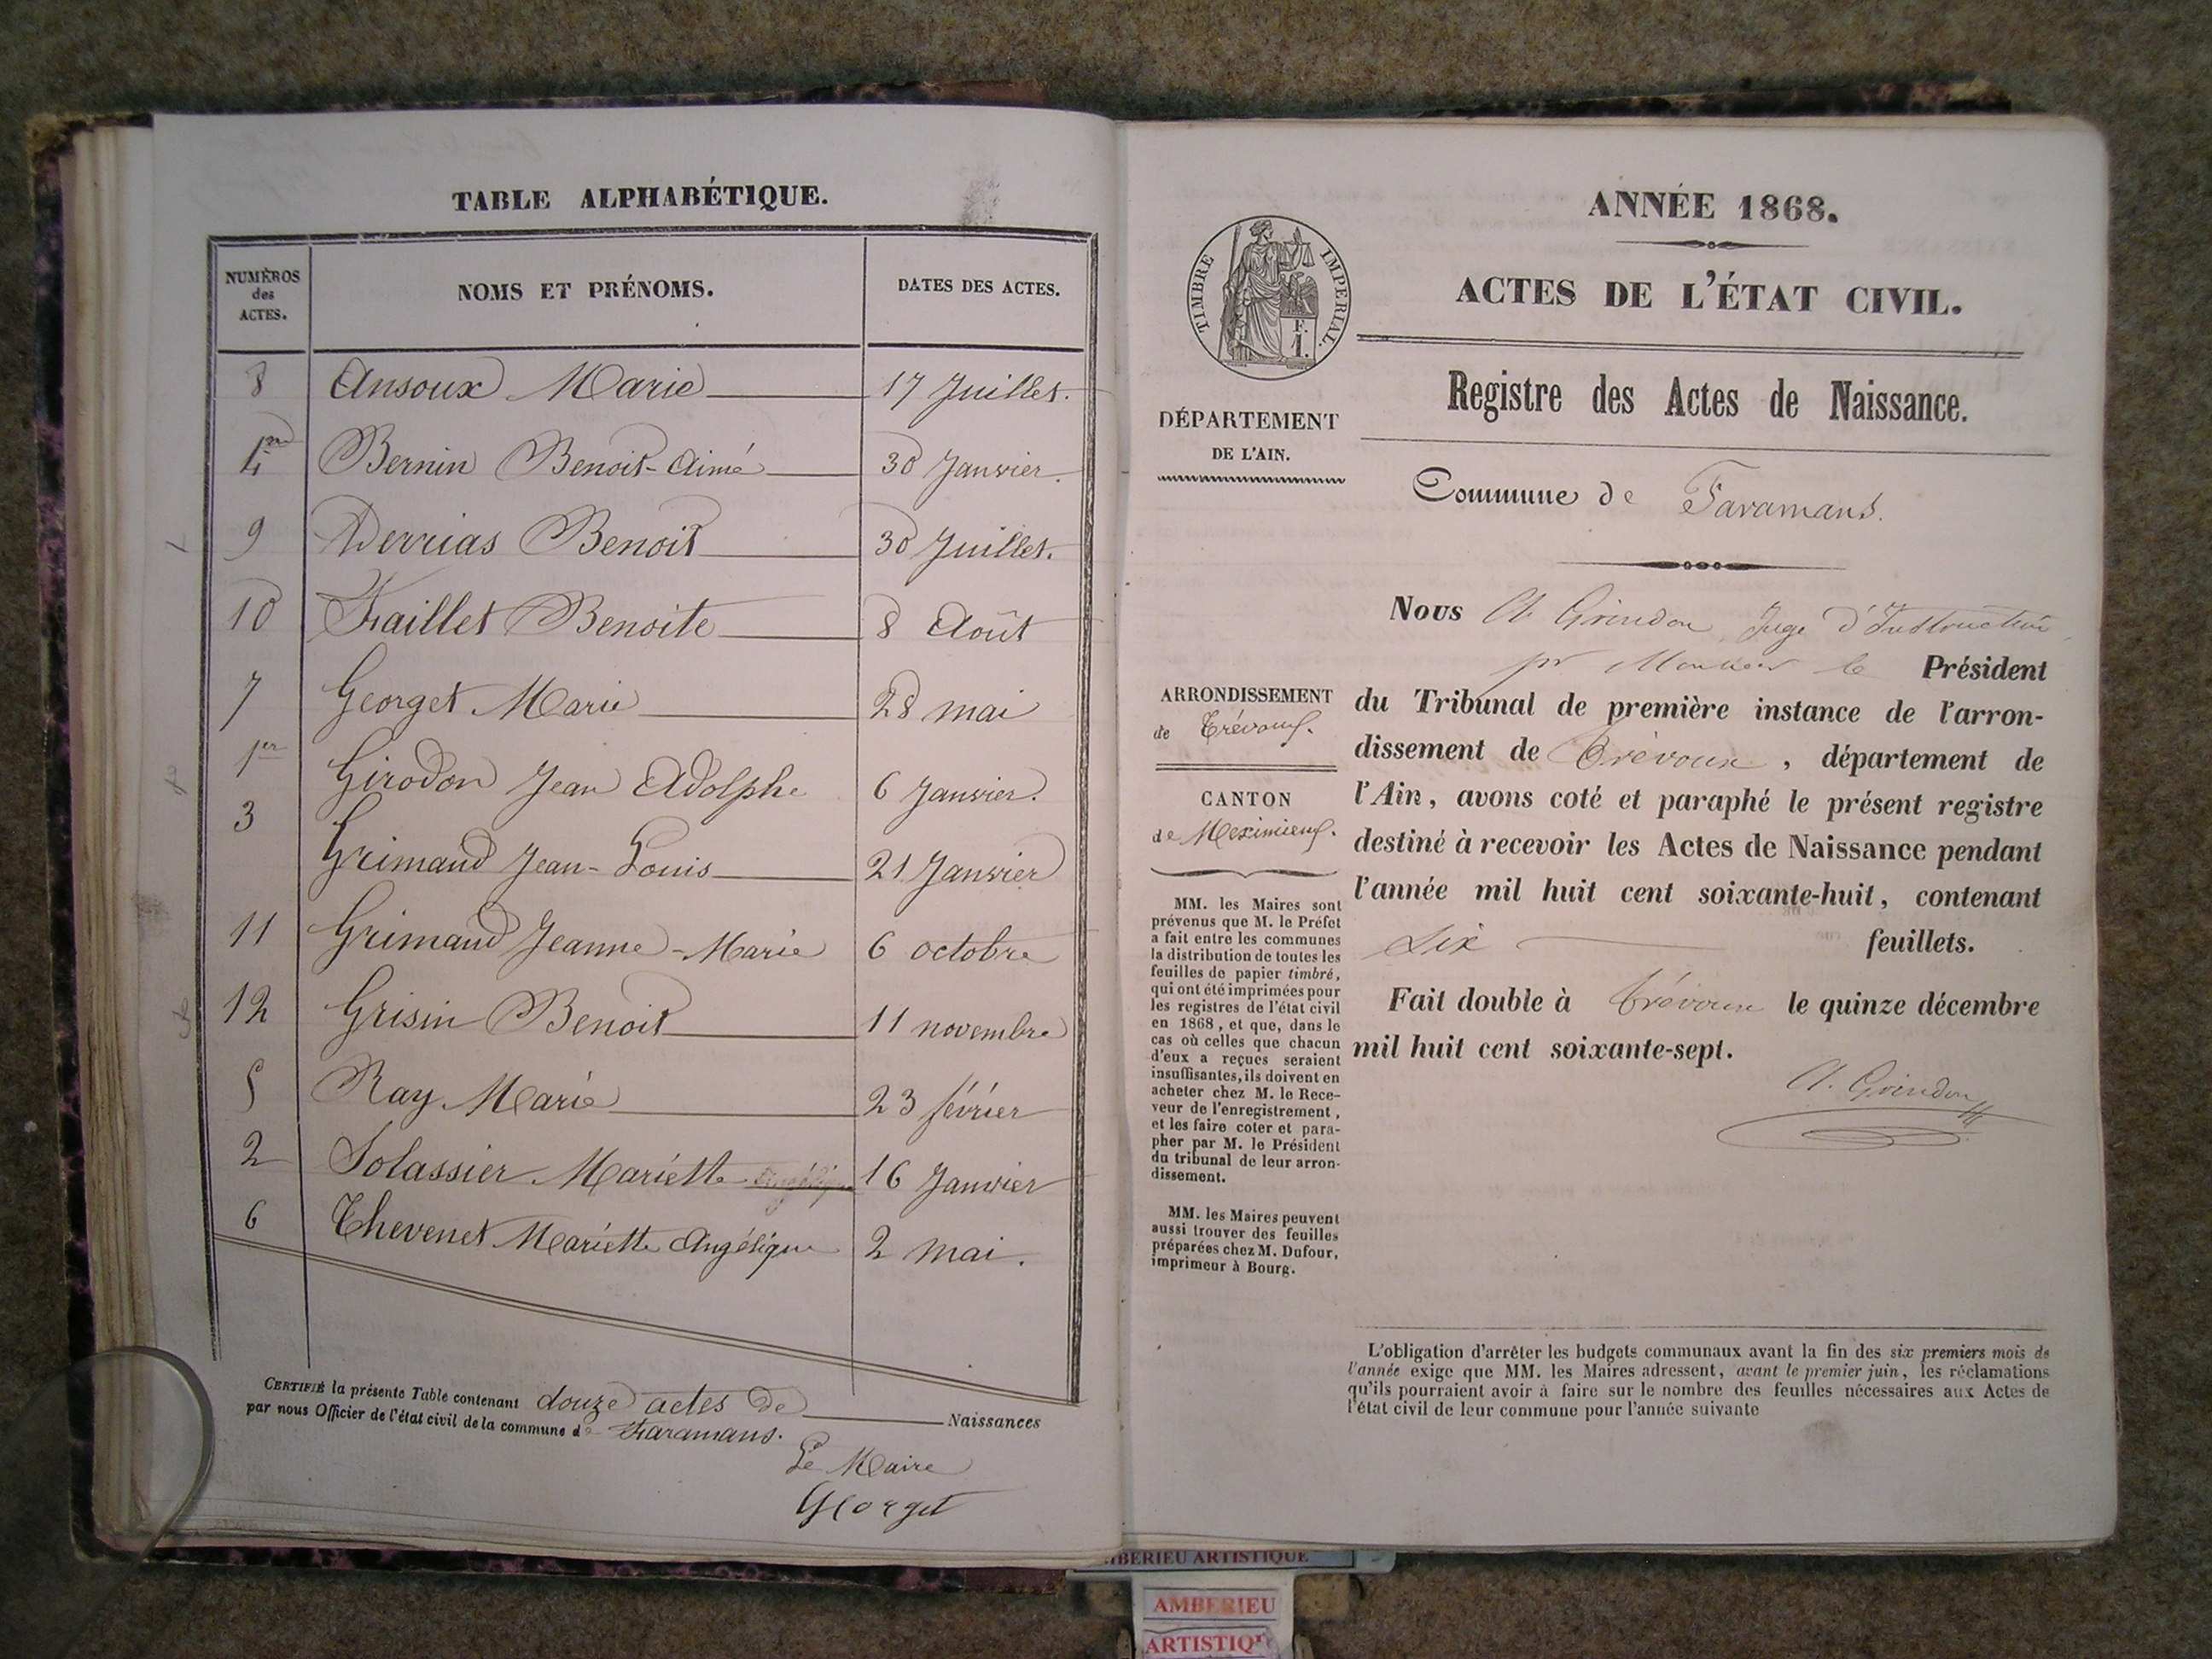 TABLE ALPHABÉTIQUE.
NUMÉROS des ACTES. NOMS ET PRÉNOMS. DATES DES ACTES.
8 Ansoux Marie 17 Juillet.
4 Bernin Benoit-Aimé 30 Janvier.
9 Derrias Benoit 30 Juillet.
10 Faillet Benoite 8 Août
7 Georget Marie 28 mai
1er Girodon Jean Adolphe 6 Janvier.
3 Grimaud Jean-Louis 21 Janvier
11 Grimaud Jeanne-Marie 6 octobre
12 Grisin Benoit 11 novembre
5 Ray Marie 23 février
2 Solassier Mariette 16 Janvier
6 Thevenet Mariette Angélique 2 mai.
CERTIFIÉ la présente Table contenant douze actes de Naissances
par nous Officier de l'état civil de la commune de Faramans.
Le Maire
Georget
TIMBRE IMPERIAL.
F.
1.
DÉPARTEMENT
DE L'AIN.
ARRONDISSEMENT
de Trévoux.
CANTON
de Meximieux.
MM. les Maires sont
prévenus que M. le Préfet
a fait entre les communes
la distribution de toutes les
feuilles de papier timbré,
qui ont été imprimées pour
les registres de l'état civil
en 1868, et que, dans le
cas où celles que chacun
d'eux a reçues seraient
insuffisantes, ils doivent en
acheter chez M. le Rece-
veur de l'enregistrement,
et les faire coter et para-
pher par M. le Président
du tribunal de leur arron-
dissement.
MM. les Maires peuvent
aussi trouver des feuilles
préparées chez M. Dufour,
imprimeur à Bourg.
ANNÉE 1868.
ACTES DE L'ÉTAT CIVIL.
Registre des Actes de Naissance.
Commune de Faramans.
Nous A. Grindon, Juge d'Instruction,
pr Monsieur le Président
du Tribunal de première instance de l'arron-
dissement de Trévoux, département de
l'Ain, avons coté et paraphé le présent registre
destiné à recevoir les Actes de Naissance pendant
l'année mil huit cent soixante-huit, contenant
Six feuillets.
Fait double à Trévoux le quinze décembre
mil huit cent soixante-sept.
A. Grindon
L'obligation d'arrêter les budgets communaux avant la fin des six premiers mois de
l'année exige que MM. les Maires adressent, avant le premier juin, les réclamations
qu'ils pourraient avoir à faire sur le nombre des feuilles nécessaires aux Actes de
l'état civil de leur commune pour l'année suivante
AMBERIEU ARTISTIQUE
AMBERIEU
ARTISTIQ